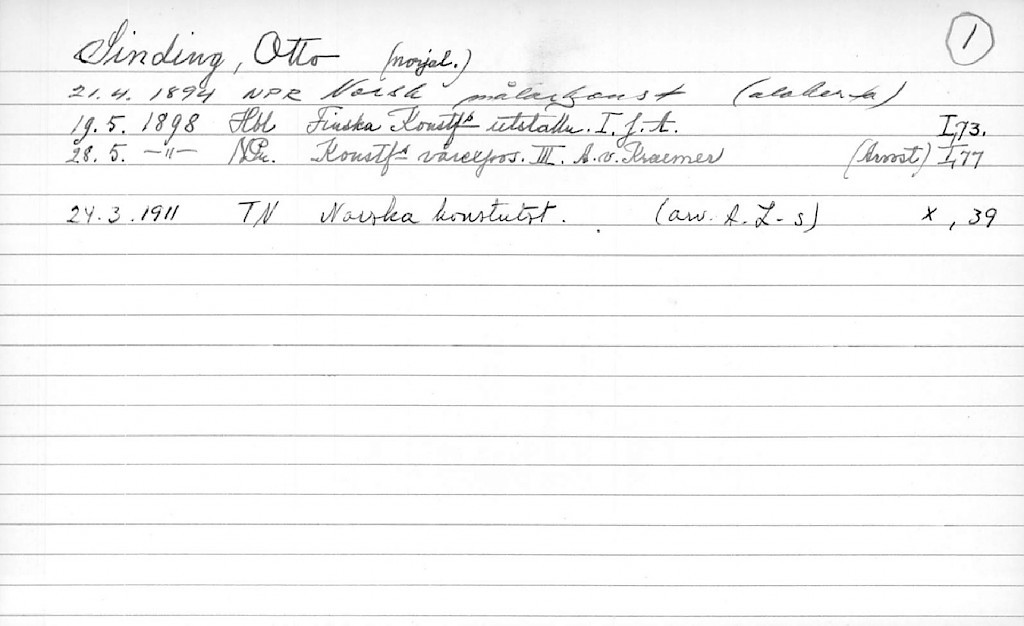 Sinding, Otto (norjal.) 1
21.4. 1894 NPR Norsk målarkonst
19.5. 1898 Hbl Finska Konstf:s utställn. I. J. A. I,73.
28.5. —"— NPr. Konstf:s III. A. v. Kraemer (Arvost) I,77
24.3.1911 TN Norska konstutst. (arv. A. L-s) x, 39